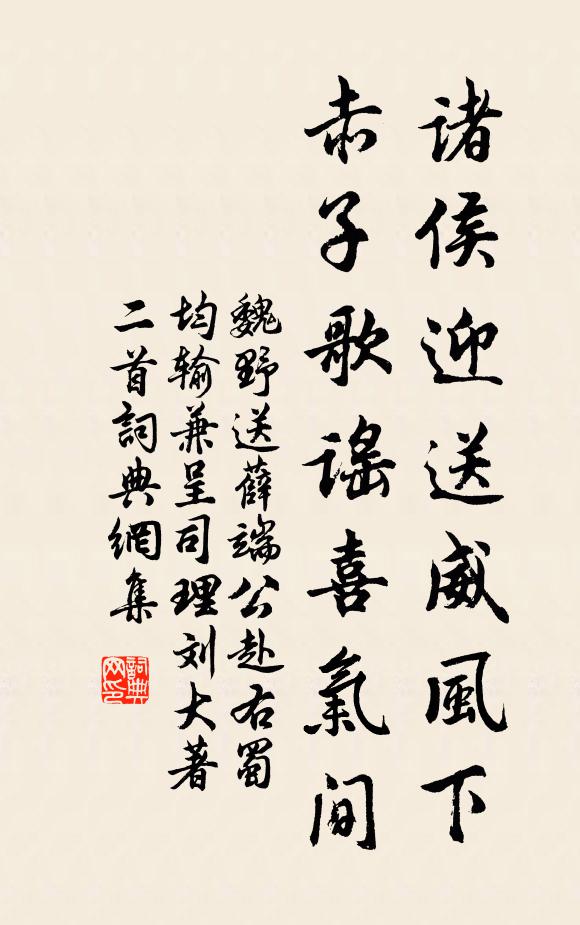 諸侯迎送威風下
赤子歌謠喜氣間
魏野送薛端公赴右蜀
均输兼呈司理刘大著
二首詞典網集
詞典网印